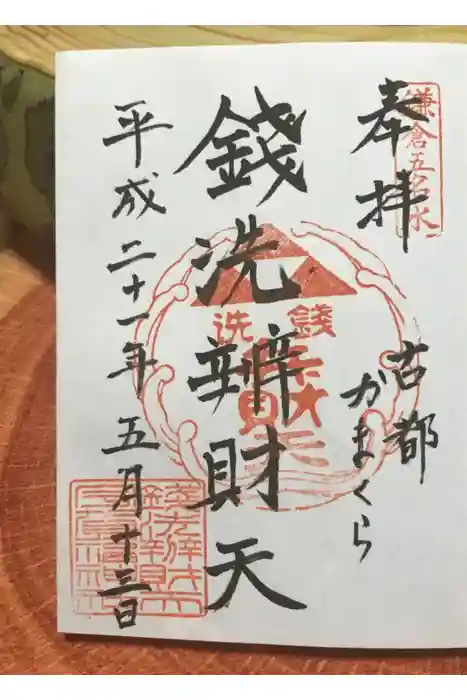 鎌倉五名水
奉拝
古都
かまくら
銭洗辨財天
錢洗
平成二十一年五月十三日